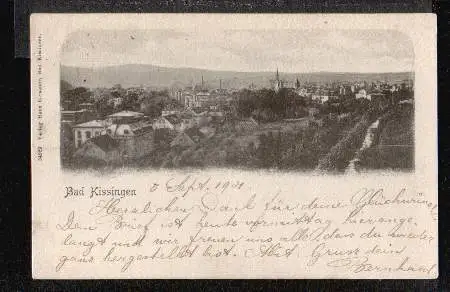 34969 Verlag Hans Bad Kissingen.
Bad Kissingen
5 Sept. 1901
Herzlichen Dank für deine Glückwünsche
Dein Brief ist heute vormittag hier ange-
langt und wir freuen uns alle, dass du wieder
ganz hergestellt bist. Mit Gruss dein
Bernhard